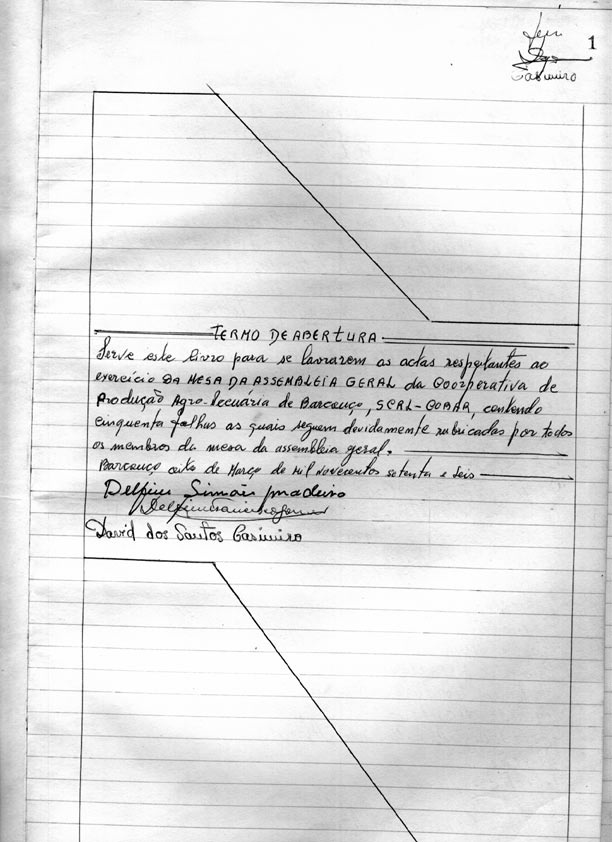 1
Casimiro
TERMO DE ABERTURA
Serve este livro para se lavrarem as actas respeitantes ao
exercício DA MESA DA ASSEMBLEIA GERAL da Cooperativa de
Produção Agro-Pecuária de Barcouço, SCRL-COBAR, contendo
cinquenta folhas as quais seguem devidamente rubricadas por todos
os membros da mesa da assembleia geral.
Barcouço oito de Março de Mil Novecentos setenta e seis
Delfim Simões Madeiro
David dos Santos Casimiro